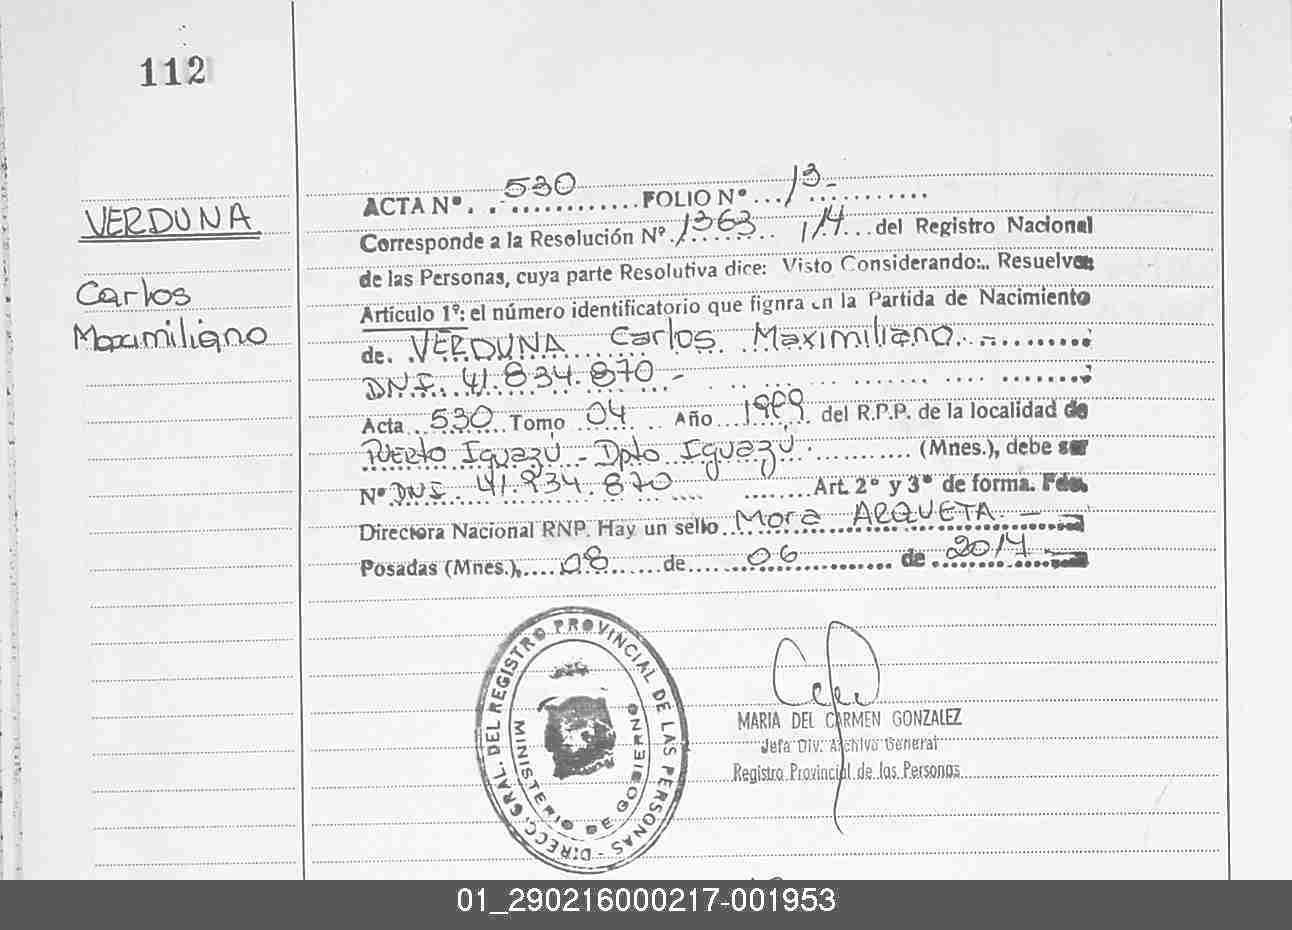 112
VERDUNA
Carlos
Maximiliano
ACTA Nº. 530 FOLIO Nº ... 13.-
Corresponde a la Resolución Nº 1363 114 del Registro Nacional
de las Personas, cuya parte Resolutiva dice: Visto Considerando:.. Resuelven
Articulo 1º: el número identificatorio que fignra en la Partida de Nacimiento
de. VERDUNA Carlos Maximiliano.-
DNI. 41.834.870.-
Acta 530 Tomo 04 Año 1999 del R.P.P. de la localidad de
PUERTO Iguazú - Dpto Iguazú (Mnes.), debe ser
Nº DNI. 41.934.870 Art. 2º y 3º de forma. Fdo.
Directora Nacional RNP. Hay un sello Mora ARQUETA.-
Posadas (Mnes.), 08 de 06 de 2014
DIRECC. GRAL. DEL REGISTRO PROVINCIAL DE LAS PERSONAS -
MINISTERIO DE GOBIERNO
MARIA DEL CARMEN GONZALEZ
Jefa Div. Archivo General
Registro Provincial de las Personas
01_290216000217-001953